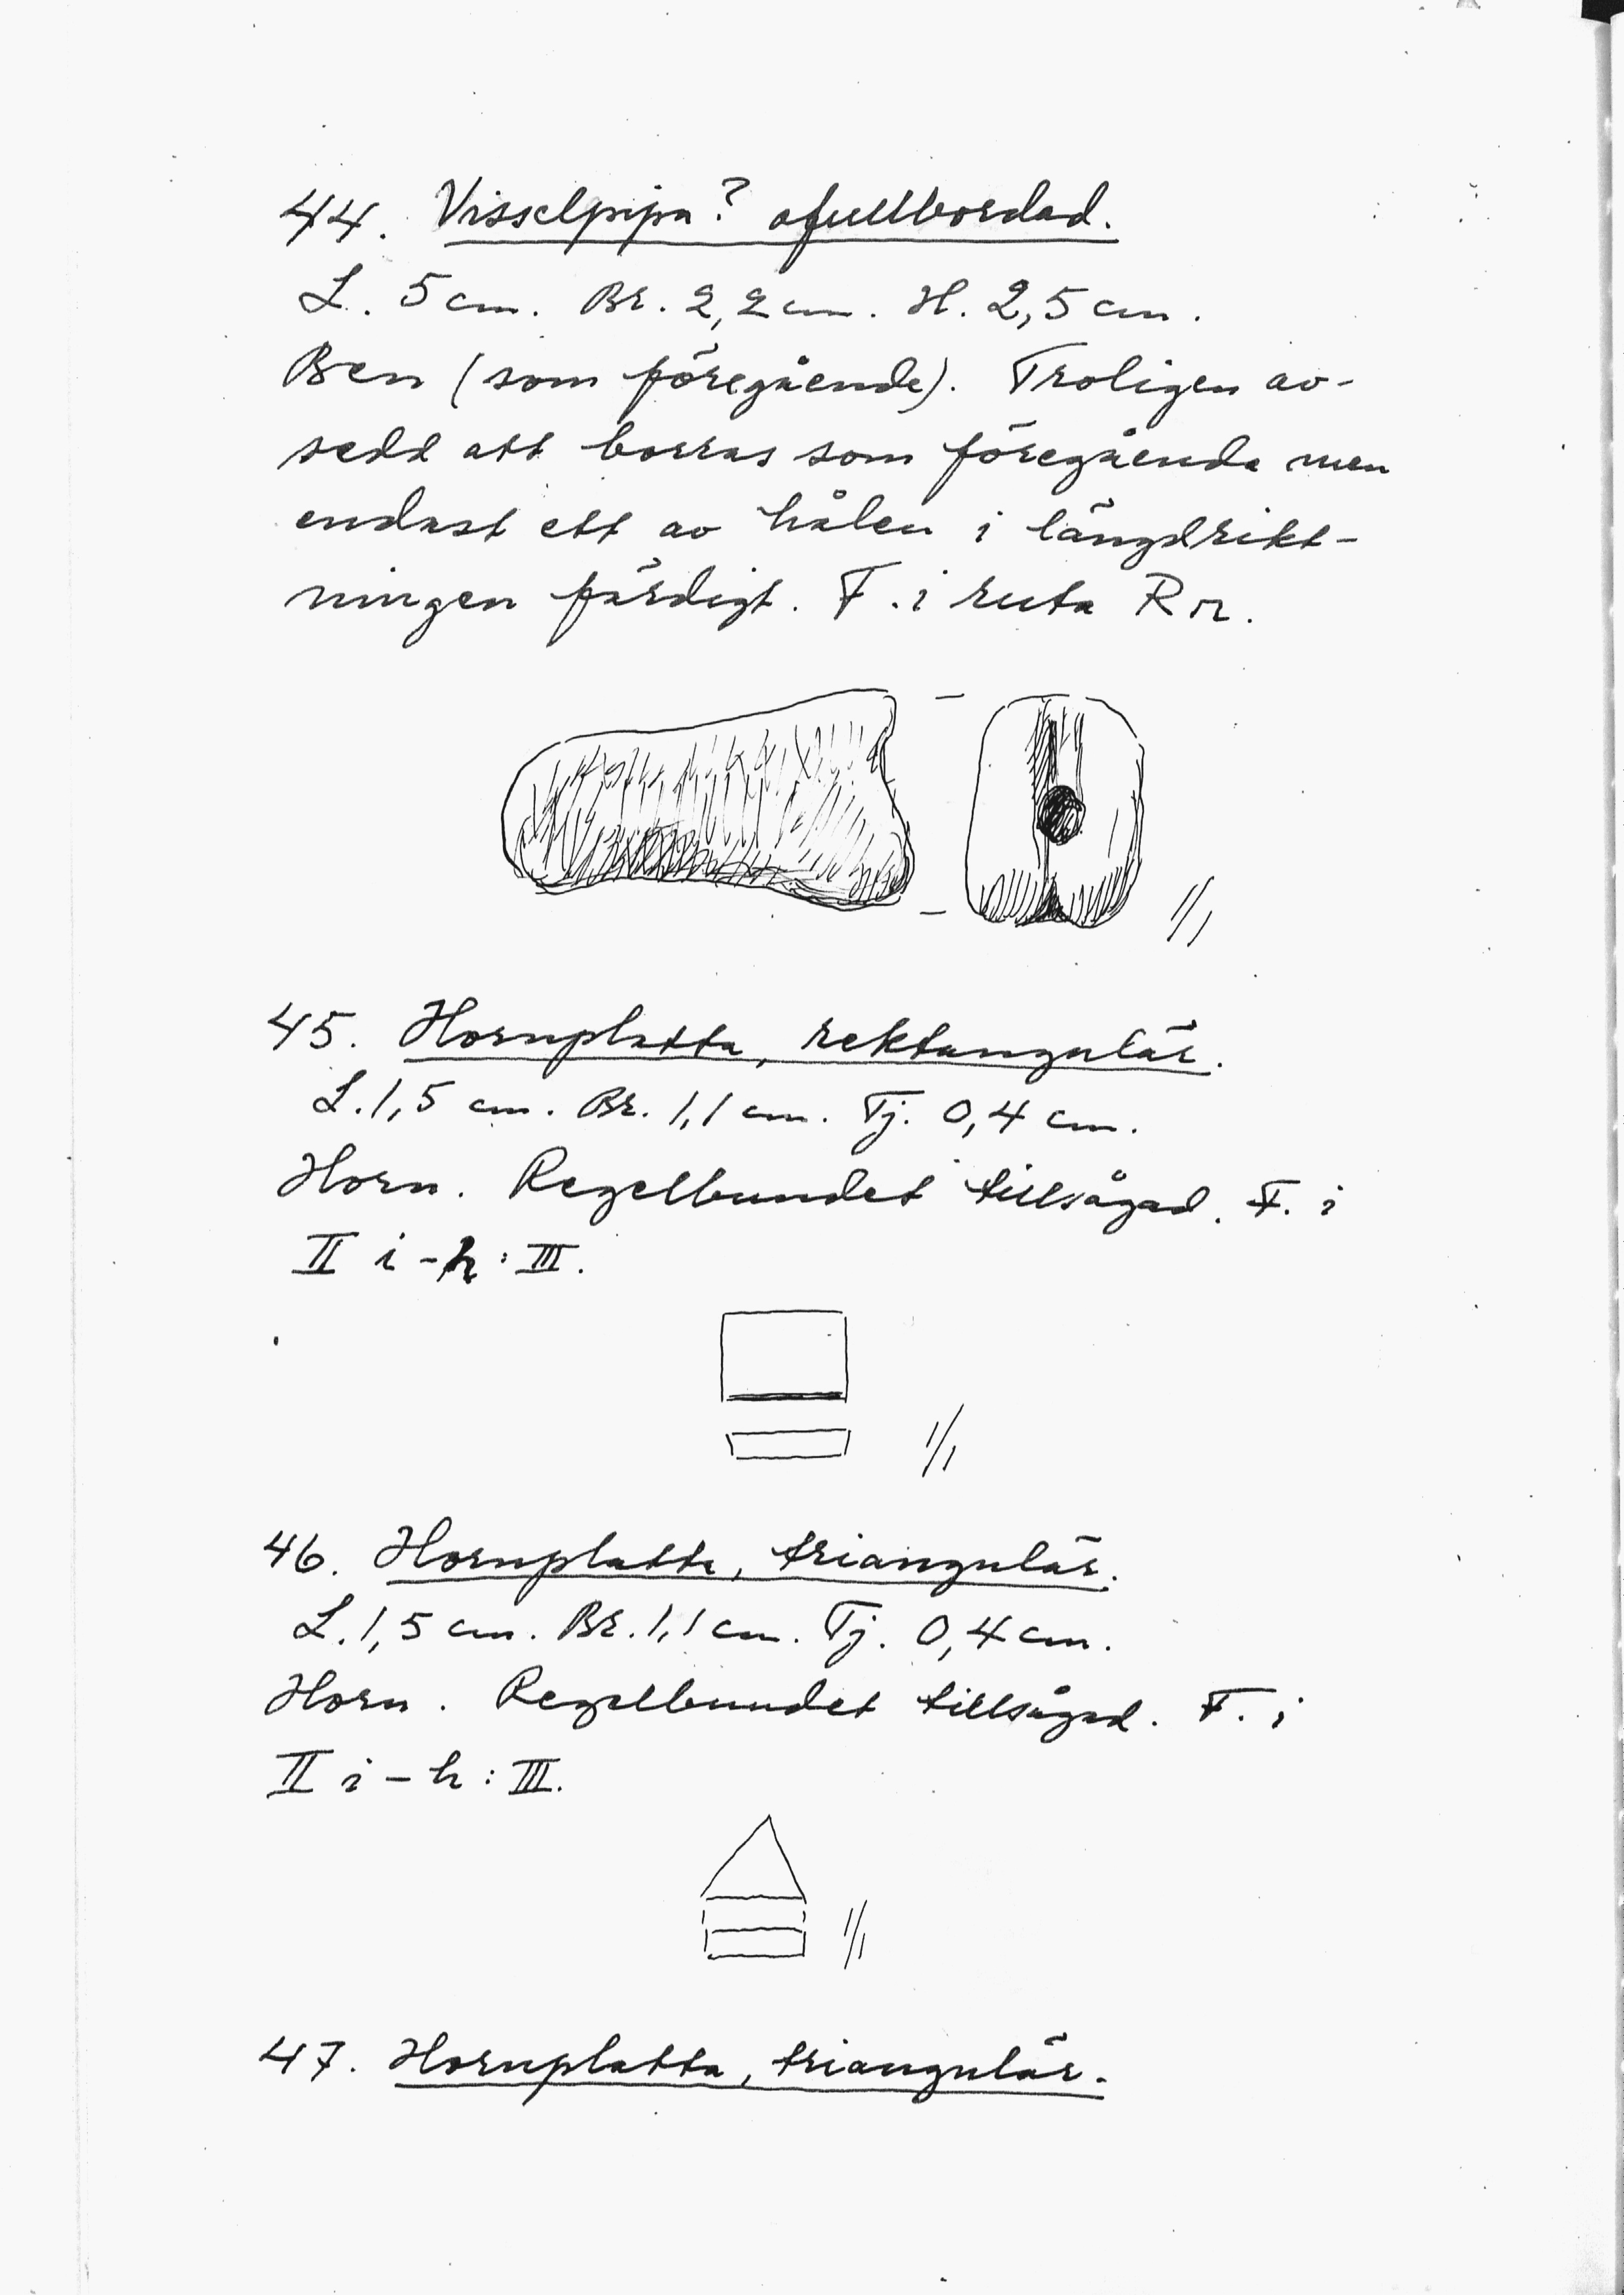 44. Visselpipa? ofullbordad.
L. 5 cm. Br. 2,2 cm. H. 2,5 cm.
Ben (som föregående). Troligen av-
sedd att borras som föregående men
endast ett av hålen i längdrikt-
ningen färdigt. F. i ruta R
1/1
45. Hornplatta, rektangulär.
L. 1,5 cm. Br. 1,1 cm. Tj. 0,4 cm.
Horn. Regelbundet tillsågad. F. i
II i-h: III.
1/1
46. Hornplatta, triangulär.
L. 1,5 cm. Br. 1,1 cm. Tj. 0,4 cm.
Horn. Regelbundet tillsågad. F. i
II i-h: III.
1/1
47. Hornplatta, triangulär.